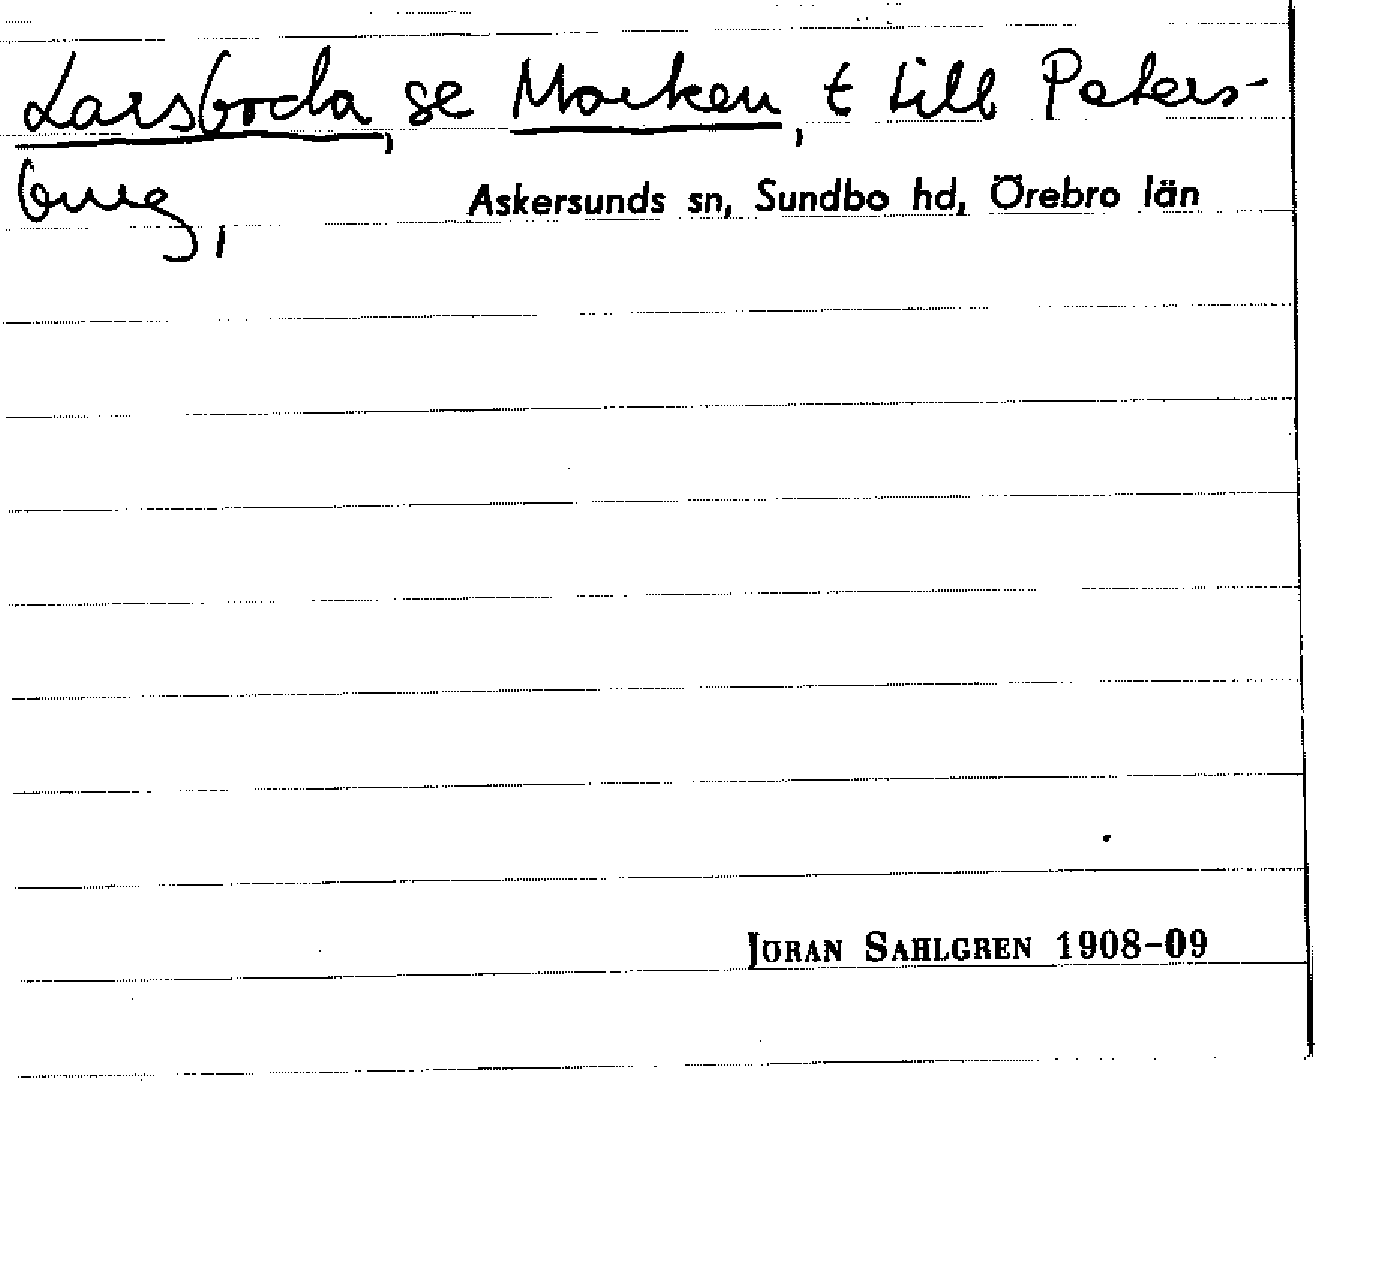 Larsboda, se Morken, t till Peters-
burg, Askersunds sn, Sundbo hd, Örebro län
JÖRAN SAHLGREN 1908-09